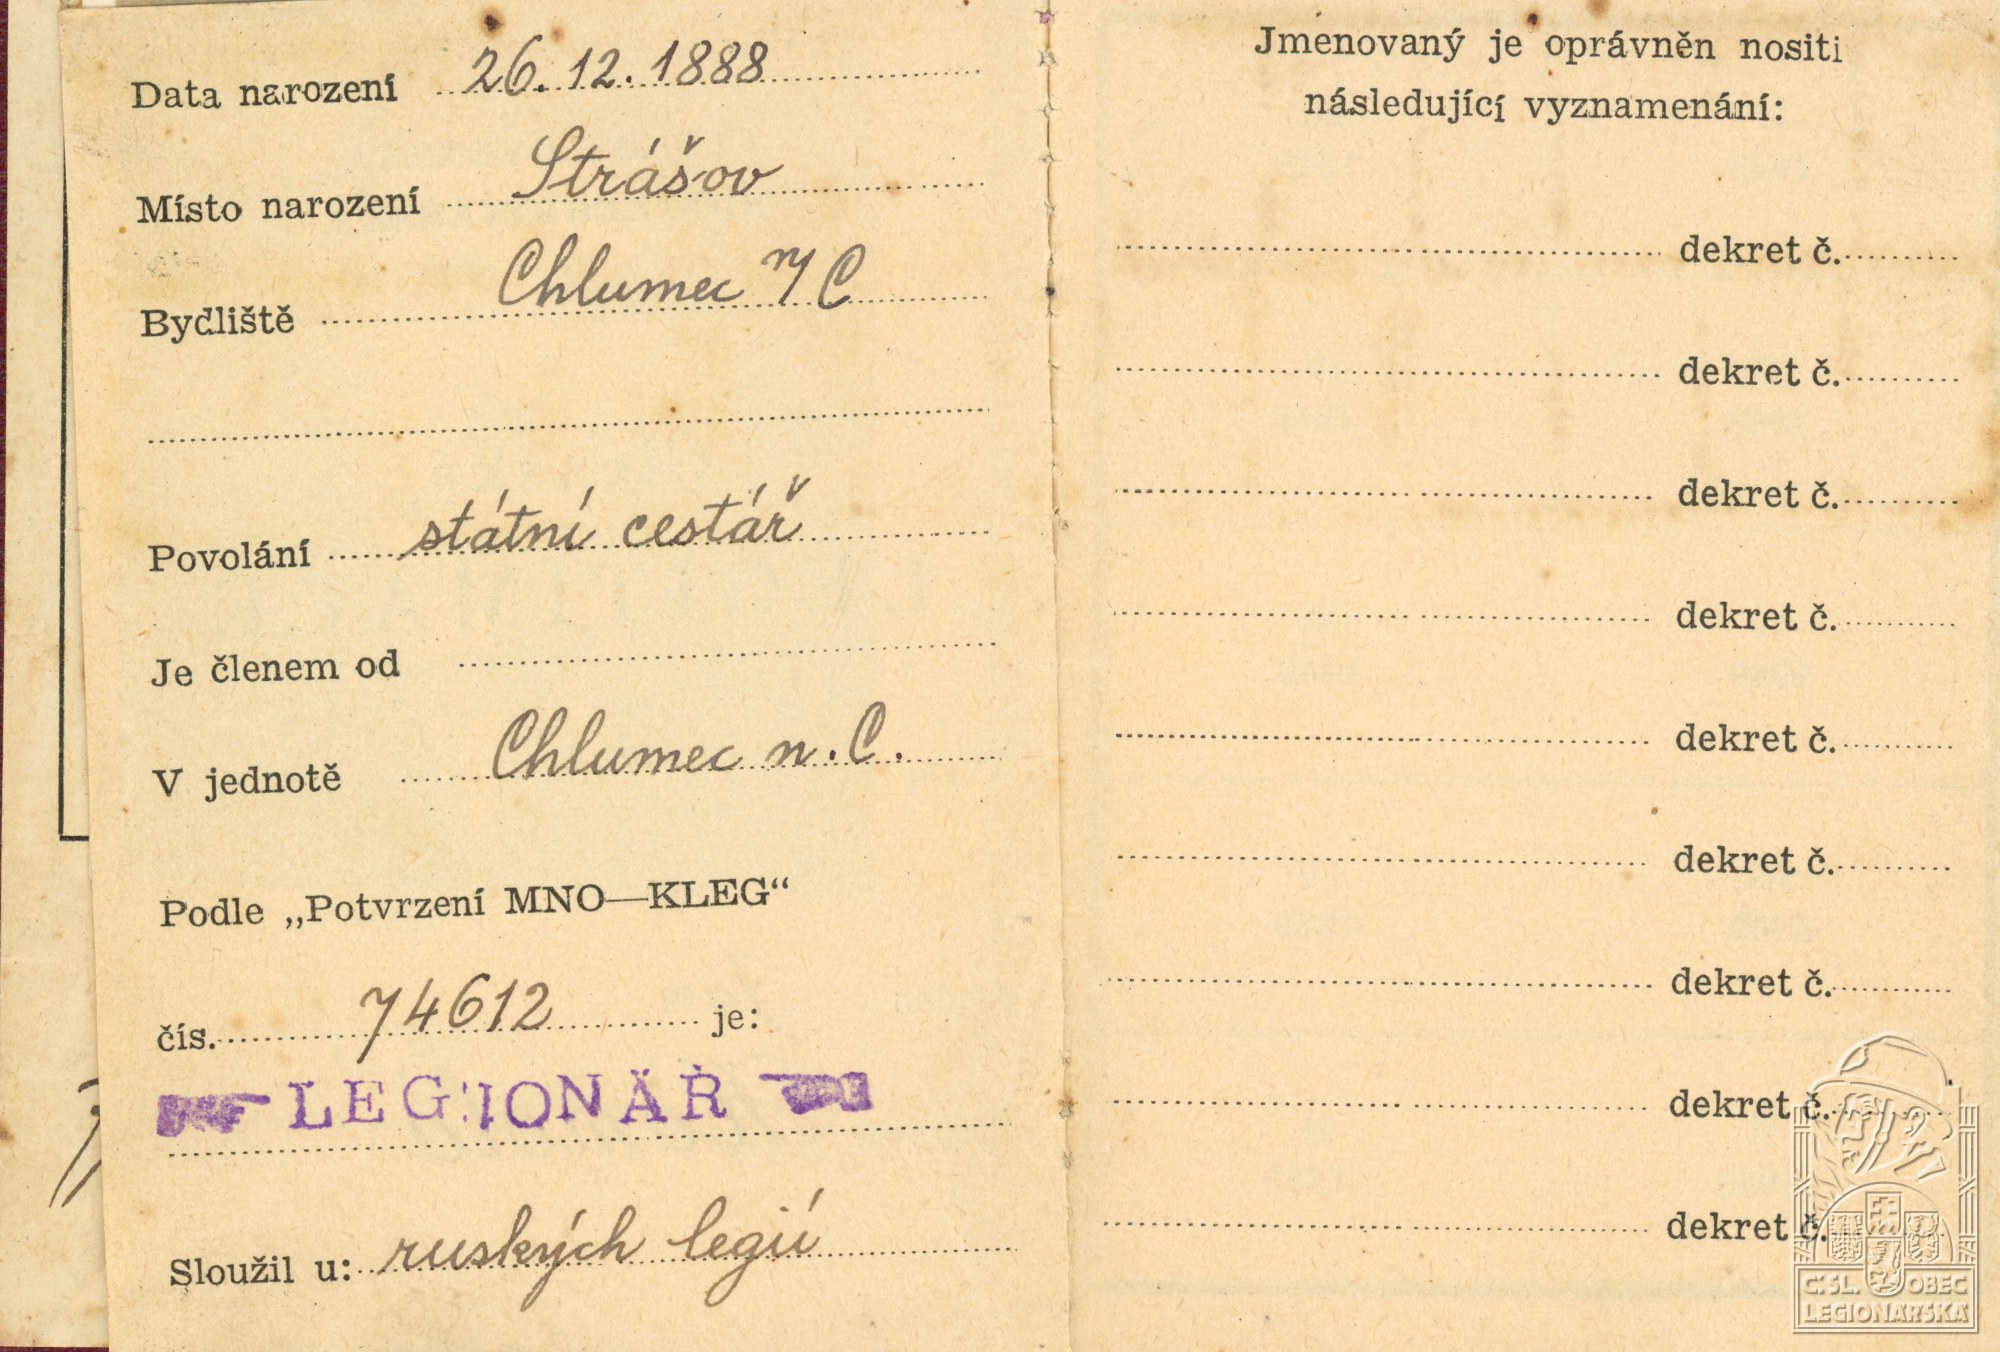 Data narození 26. 12. 1888
Místo narození Strášov
Bydliště Chlumec n/C
Povolání státní cestář
Je členem od
V jednotě Chlumec n. C.
Podle „Potvrzení MNO—KLEG“
čís. 74612 je:
LEGIONÁŘ
Sloužil u: ruských legií
Jmenovaný je oprávněn nositi
následující vyznamenání:
dekret č.
dekret č.
dekret č.
dekret č.
dekret č.
dekret č.
dekret č.
dekret č.
dekret č.
Č.SL. OBEC
LEGIONÁŘSKÁ